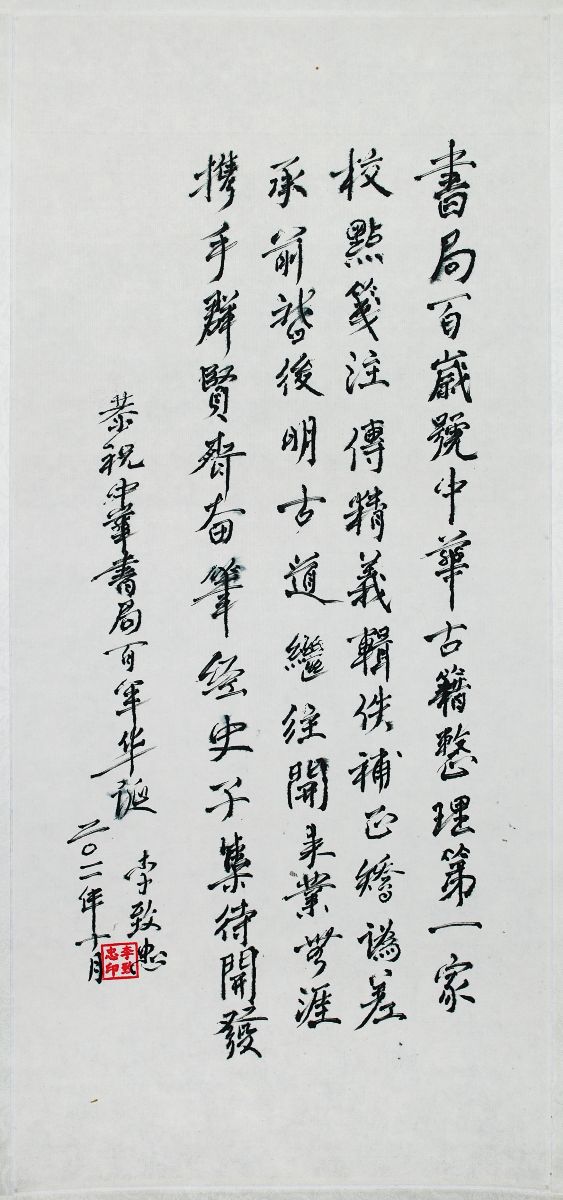 書局百歲號中華古籍整理第一家
校點箋注傳精義輯佚補正矯譌差
承前啓後明古道繼往開來業無涯
携手群賢齊奋筆经史子集待開發
恭祝中華書局百年华诞
李致忠
二〇一一年十月
李致忠印